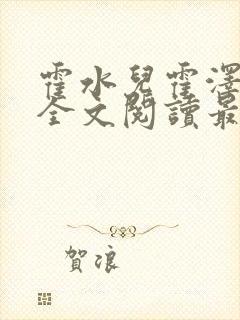 霍水兒霍澤
全文閱讀最
賀浪